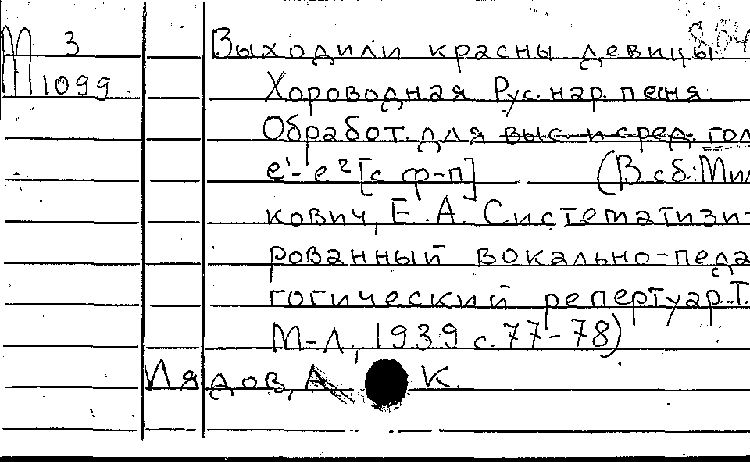 М 3 Выходили красны девицы
1099 Хороводная Рус. нар. песня
Обработ. для выс. и сред. гол
e¹-e² [с ф-п] (В сб: Мил
кович, Е. А. Систематизи-
рованный вокально-педа
гогический репертуар. Т.
М-Л, 1939 с. 77-78)
Лядов, А К.